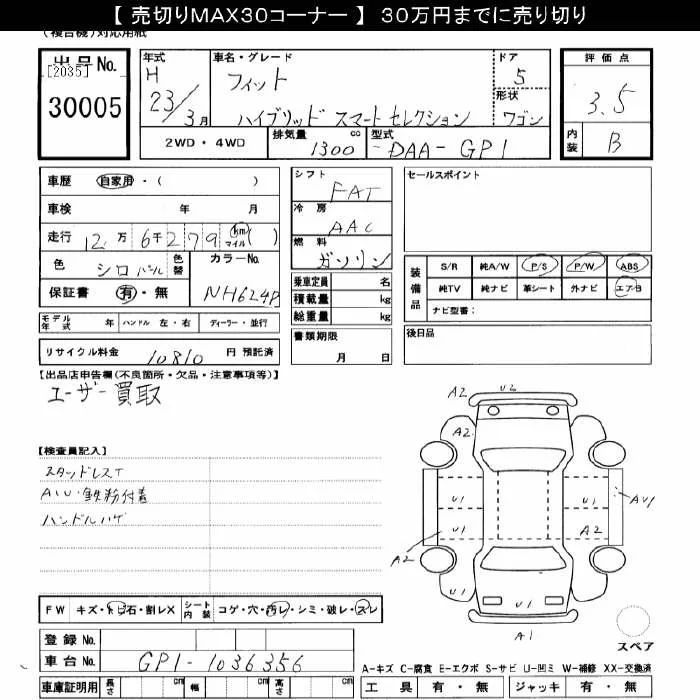 【 売切りMAX30コーナー 】 30万円までに売り切り
(複合機)対応用紙
出品No.
[2035]
30005
年式
H
23/3月
車名・グレード
フィット
ハイブリッド スマートセレクション
ドア
5
形状
ワゴン
評価点
3.5
内装
B
2WD・4WD
排気量
1300
cc
型式
DAA-GP1
車歴 自家用・( )
車検 年 月
走行 12万 6千279 km マイル ( )
色 シロパール 色替
カラーNo.
NH624P
保証書 有・無
モデル年式 年 ハンドル 左・右 ディーラー・並行
リサイクル料金 10810 円 預託済
シフト
FAT
冷房
AAC
燃料
ガソリン
乗車定員 名
積載量 kg
総重量 kg
書類期限
月 日
セールスポイント
装備品
S/R 純A/W P/S P/W ABS
純TV 純ナビ 革シート 外ナビ エアB
ナビ型番:
後日品
【出品店申告欄(不良箇所・欠品・注意事項等)】
ユーザー買取
【検査員記入】
スタッドレスT
AU・鉄粉付着
ハンドルハゲ
A2 U2
A2
U1 U1
U1 A2
A2
AU1
U1
U1 U1
A1
スペア
FW キズ・トビ石・割レX シート内装 コゲ・穴・汚レ・シミ・破レ・スレ
登録No.
車台No. GP1-1036356
車庫証明用 長さ cm 幅 cm 高さ cm
A-キズ C-腐食 E-エクボ S-サビ U-凹ミ W-補修 XX-交換済
工具 有・無 ジャッキ 有・無